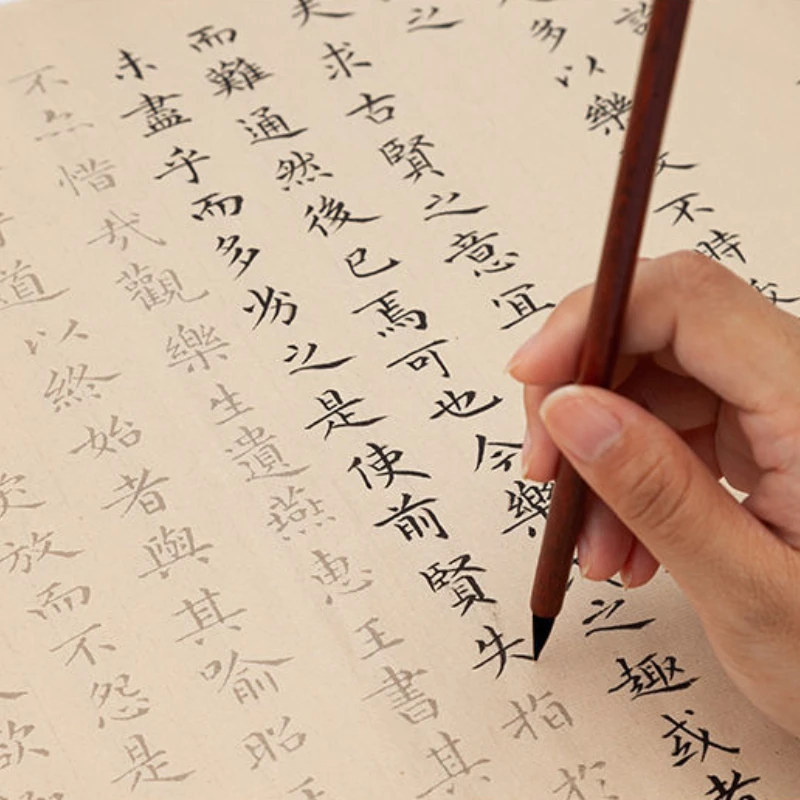 多以樂毅不時
之
夫求古賢之意宜
而難通然後已焉可也今樂毅之趣或者
未盡乎而多劣之是使前賢失指於
不亦惜哉觀樂生遺燕惠王書其
乎道以終始者與其喻昭王
受放而不怨是
欲